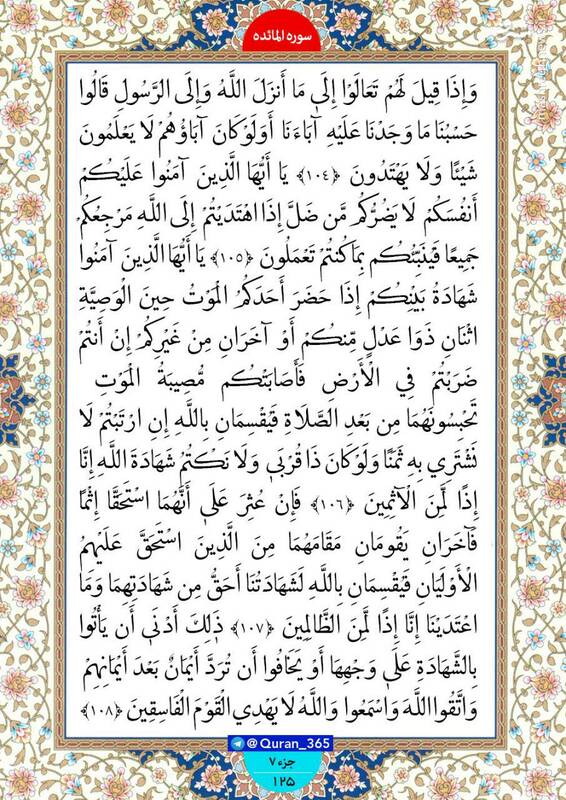 سوره المائده
وَإِذَا قِيلَ لَهُمْ تَعَالَوْا إِلَىٰ مَا أَنزَلَ اللَّهُ وَإِلَى الرَّسُولِ قَالُوا
حَسْبُنَا مَا وَجَدْنَا عَلَيْهِ آبَاءَنَا أَوَلَوْ كَانَ آبَاؤُهُمْ لَا يَعْلَمُونَ
شَيْئًا وَلَا يَهْتَدُونَ ﴿١٠٤﴾ يَا أَيُّهَا الَّذِينَ آمَنُوا عَلَيْكُمْ
أَنفُسَكُمْ لَا يَضُرُّكُم مَّن ضَلَّ إِذَا اهْتَدَيْتُمْ إِلَى اللَّهِ مَرْجِعُكُمْ
جَمِيعًا فَيُنَبِّئُكُم بِمَا كُنتُمْ تَعْمَلُونَ ﴿١٠٥﴾ يَا أَيُّهَا الَّذِينَ آمَنُوا
شَهَادَةُ بَيْنِكُمْ إِذَا حَضَرَ أَحَدَكُمُ الْمَوْتُ حِينَ الْوَصِيَّةِ
اثْنَانِ ذَوَا عَدْلٍ مِّنكُمْ أَوْ آخَرَانِ مِنْ غَيْرِكُمْ إِنْ أَنتُمْ
ضَرَبْتُمْ فِي الْأَرْضِ فَأَصَابَتْكُم مُّصِيبَةُ الْمَوْتِ
تَحْبِسُونَهُمَا مِن بَعْدِ الصَّلَاةِ فَيُقْسِمَانِ بِاللَّهِ إِنِ ارْتَبْتُمْ لَا
نَشْتَرِي بِهِ ثَمَنًا وَلَوْ كَانَ ذَا قُرْبَىٰ وَلَا نَكْتُمُ شَهَادَةَ اللَّهِ إِنَّا
إِذًا لَّمِنَ الْآثِمِينَ ﴿١٠٦﴾ فَإِنْ عُثِرَ عَلَىٰ أَنَّهُمَا اسْتَحَقَّا إِثْمًا
فَآخَرَانِ يَقُومَانِ مَقَامَهُمَا مِنَ الَّذِينَ اسْتَحَقَّ عَلَيْهِمُ
الْأَوْلَيَانِ فَيُقْسِمَانِ بِاللَّهِ لَشَهَادَتُنَا أَحَقُّ مِن شَهَادَتِهِمَا وَمَا
اعْتَدَيْنَا إِنَّا إِذًا لَّمِنَ الظَّالِمِينَ ﴿١٠٧﴾ ذَٰلِكَ أَدْنَىٰ أَن يَأْتُوا
بِالشَّهَادَةِ عَلَىٰ وَجْهِهَا أَوْ يَخَافُوا أَن تُرَدَّ أَيْمَانٌ بَعْدَ أَيْمَانِهِمْ
وَاتَّقُوا اللَّهَ وَاسْمَعُوا وَاللَّهُ لَا يَهْدِي الْقَوْمَ الْفَاسِقِينَ ﴿١٠٨﴾
@Quran_365
جزء ۷
۱۲۵